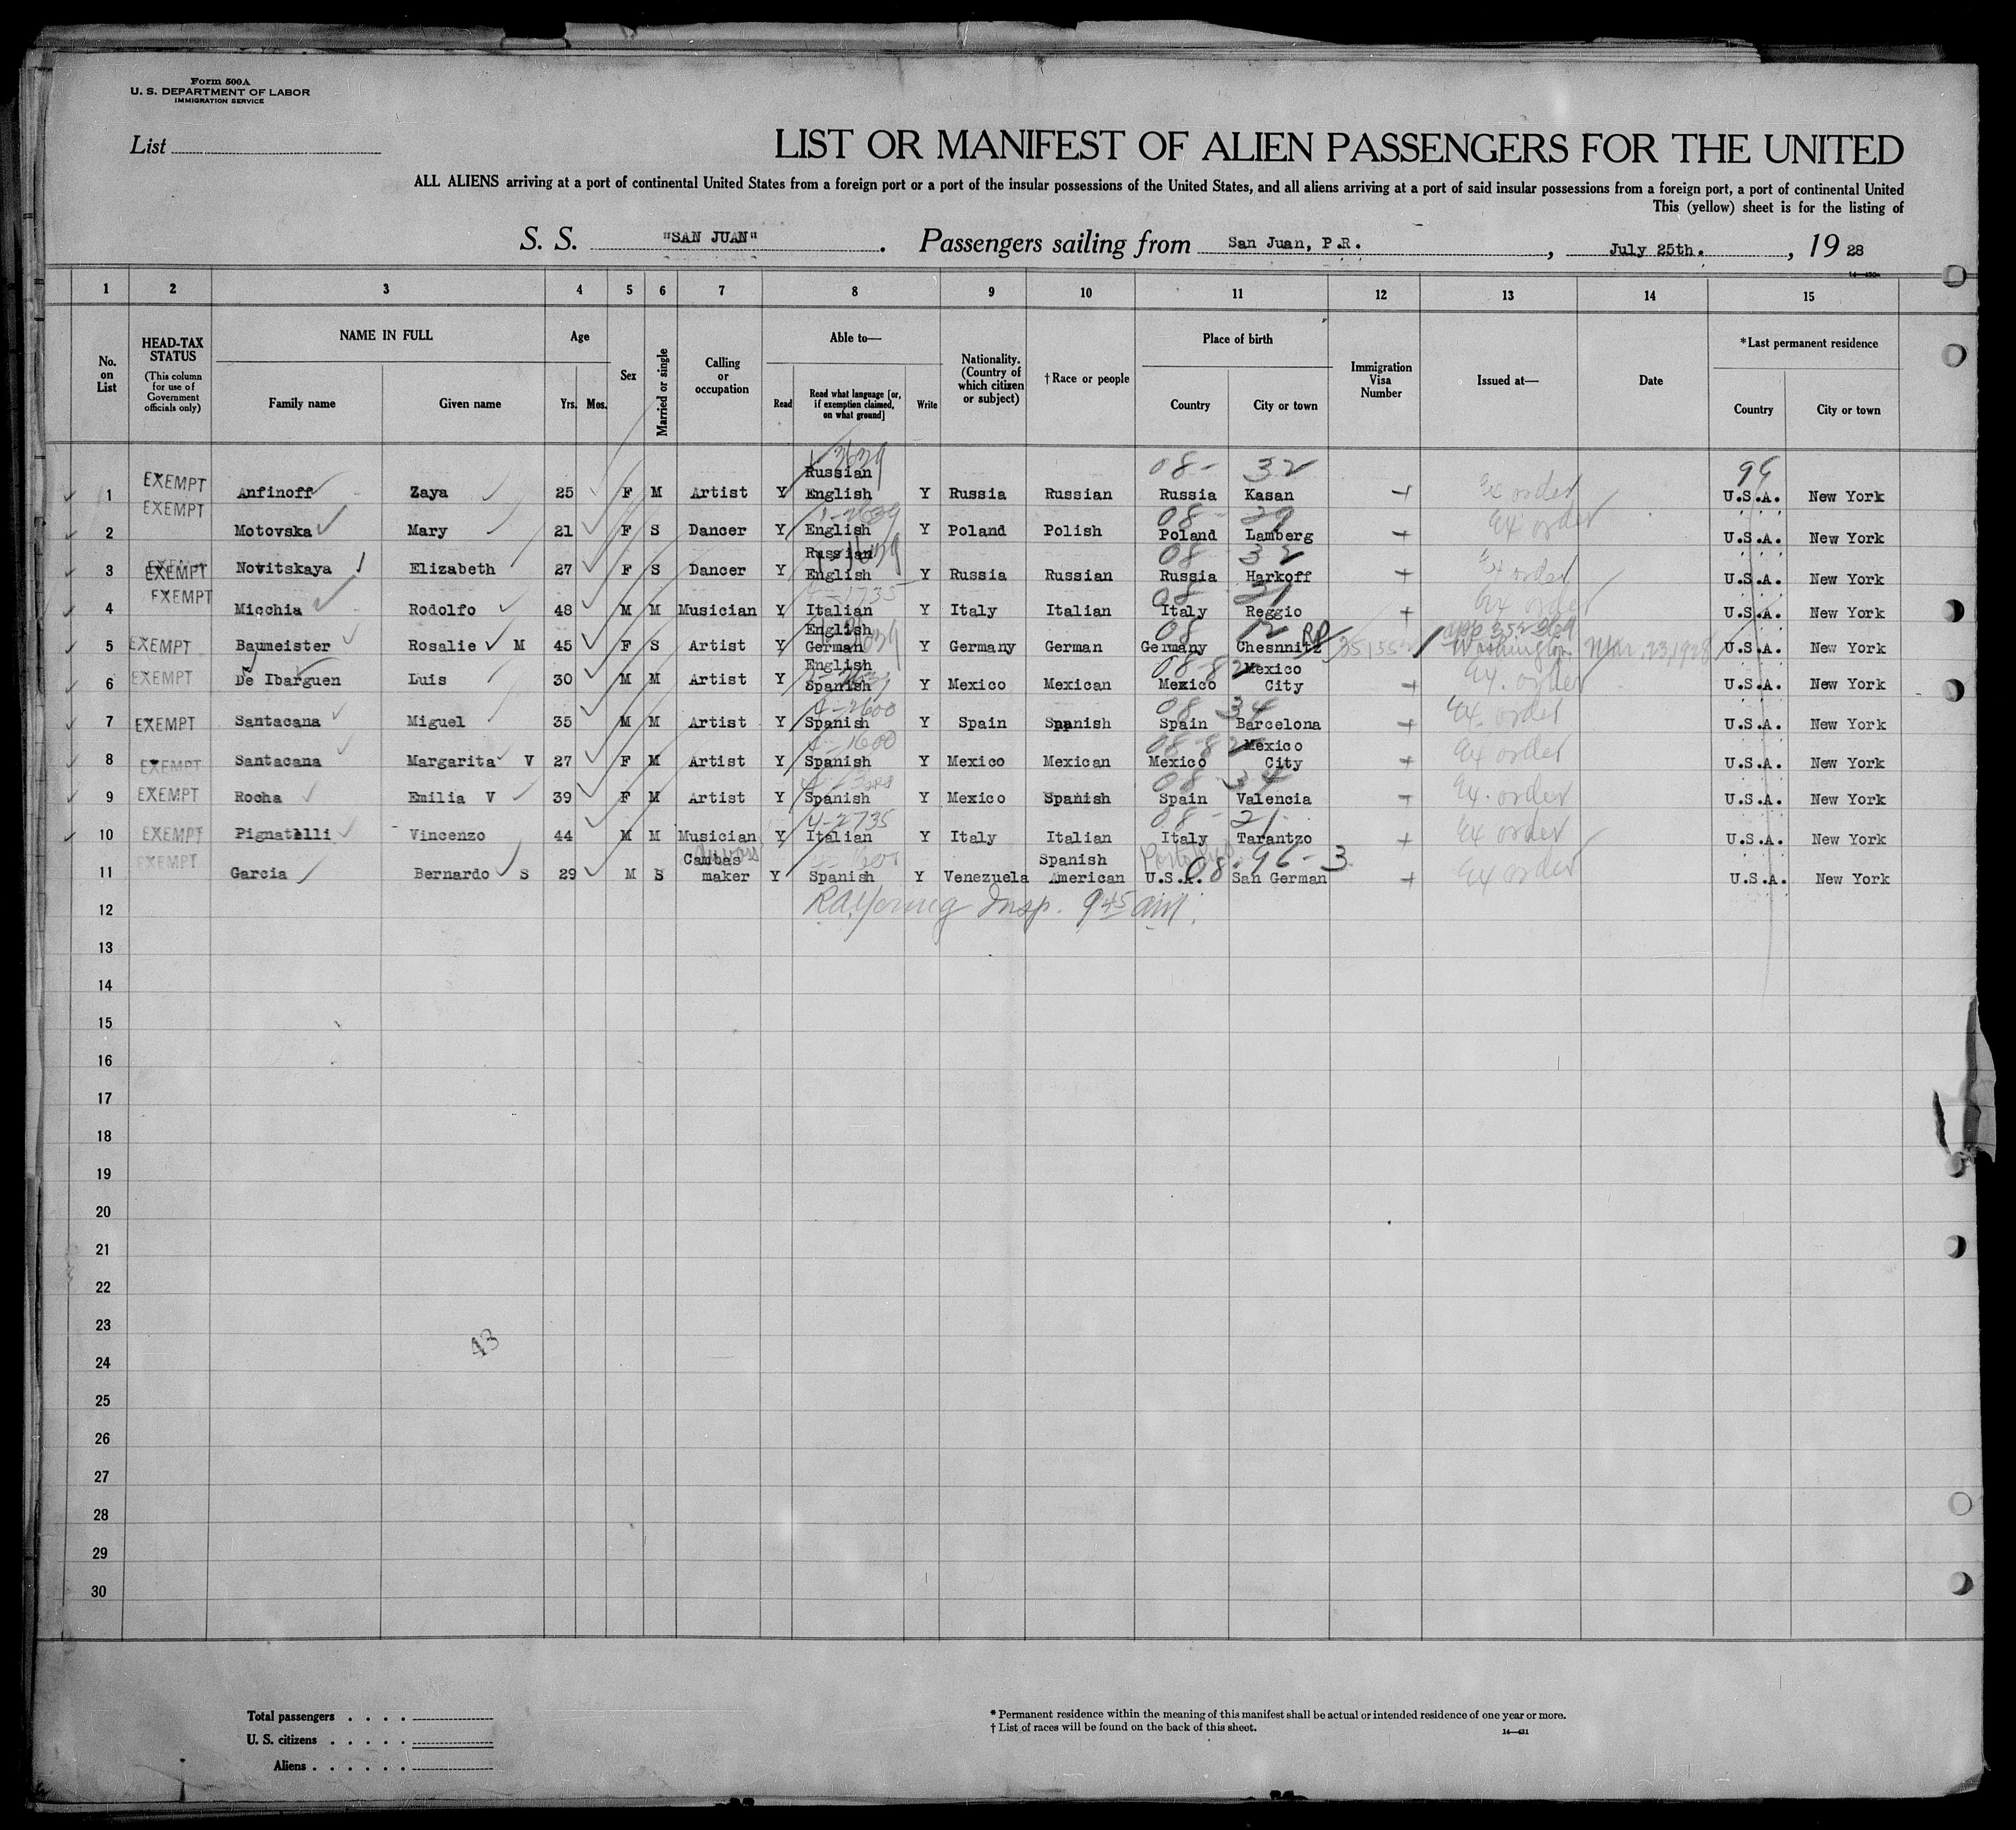 Form 500A
U. S. DEPARTMENT OF LABOR
IMMIGRATION SERVICE
List
LIST OR MANIFEST OF ALIEN PASSENGERS FOR THE UNITED
ALL ALIENS arriving at a port of continental United States from a foreign port or a port of the insular possessions of the United States, and all aliens arriving at a port of said insular possessions from a foreign port, a port of continental United
This (yellow) sheet is for the listing of
S. S. "SAN JUAN". Passengers sailing from San Juan, P.R., July 25th., 19 28
1 2 3 4 5 6 7 8 9 10 11 12 13 14 15
No. on List
HEAD-TAX STATUS (This column for use of Government officials only)
NAME IN FULL
Family name Given name
Age
Yrs. Mos.
Sex
Married or single
Calling or occupation
Able to—
Read Read what language [or, if exemption claimed, on what ground] Write
Nationality. (Country of which citizen or subject)
† Race or people
Place of birth
Country City or town
Immigration Visa Number
Issued at—
Date
* Last permanent residence
Country City or town
08- 32 99
1 EXEMPT Anfinoff Zaya 25 F M Artist Y Russian English Y Russia Russian Russia Kasan Ex order U.S.A. New York
08- 29
2 EXEMPT Motovska Mary 21 F S Dancer Y English Y Poland Polish Poland Lamberg Ex order U.S.A. New York
08 32
3 EXEMPT Novitskaya Elizabeth 27 F S Dancer Y Russian English Y Russia Russian Russia Harkoff Ex order U.S.A. New York
08- 21
4 EXEMPT Micchia Rodolfo 48 M M Musician Y Italian Y Italy Italian Italy Reggio Ex order U.S.A. New York
08 12
5 EXEMPT Baumeister Rosalie M 45 F S Artist Y English German Y Germany German Germany Chesnnitz Washington Mar. 23, 1928 U.S.A. New York
08-82
6 EXEMPT De Ibarguen Luis 30 M M Artist Y English Spanish Y Mexico Mexican Mexico Mexico City Ex. order U.S.A. New York
4-2600 08 34
7 EXEMPT Santacana Miguel 35 M M Artist Y Spanish Y Spain Spanish Spain Barcelona Ex. order U.S.A. New York
4-1600 08-82
8 EXEMPT Santacana Margarita V 27 F M Artist Y Spanish Y Mexico Mexican Mexico Mexico City Ex order U.S.A. New York
08 34
9 EXEMPT Rocha Emilia V 39 F M Artist Y Spanish Y Mexico Spanish Spain Valencia Ex. order U.S.A. New York
4-2735 08- 21
10 EXEMPT Pignatelli Vincenzo 44 M M Musician Y Italian Y Italy Italian Italy Tarantzo Ex order U.S.A. New York
08-96-3
11 EXEMPT Garcia Bernardo S 29 M S Cambas maker Y Spanish Y Venezuela Spanish American U.S.A. San German Ex order U.S.A. New York
12 Insp. 9 45 am.
13
14
15
16
17
18
19
20
21
22
23
43
24
25
26
27
28
29
30
Total passengers
U. S. citizens
Aliens
* Permanent residence within the meaning of this manifest shall be actual or intended residence of one year or more.
† List of races will be found on the back of this sheet.
14—431